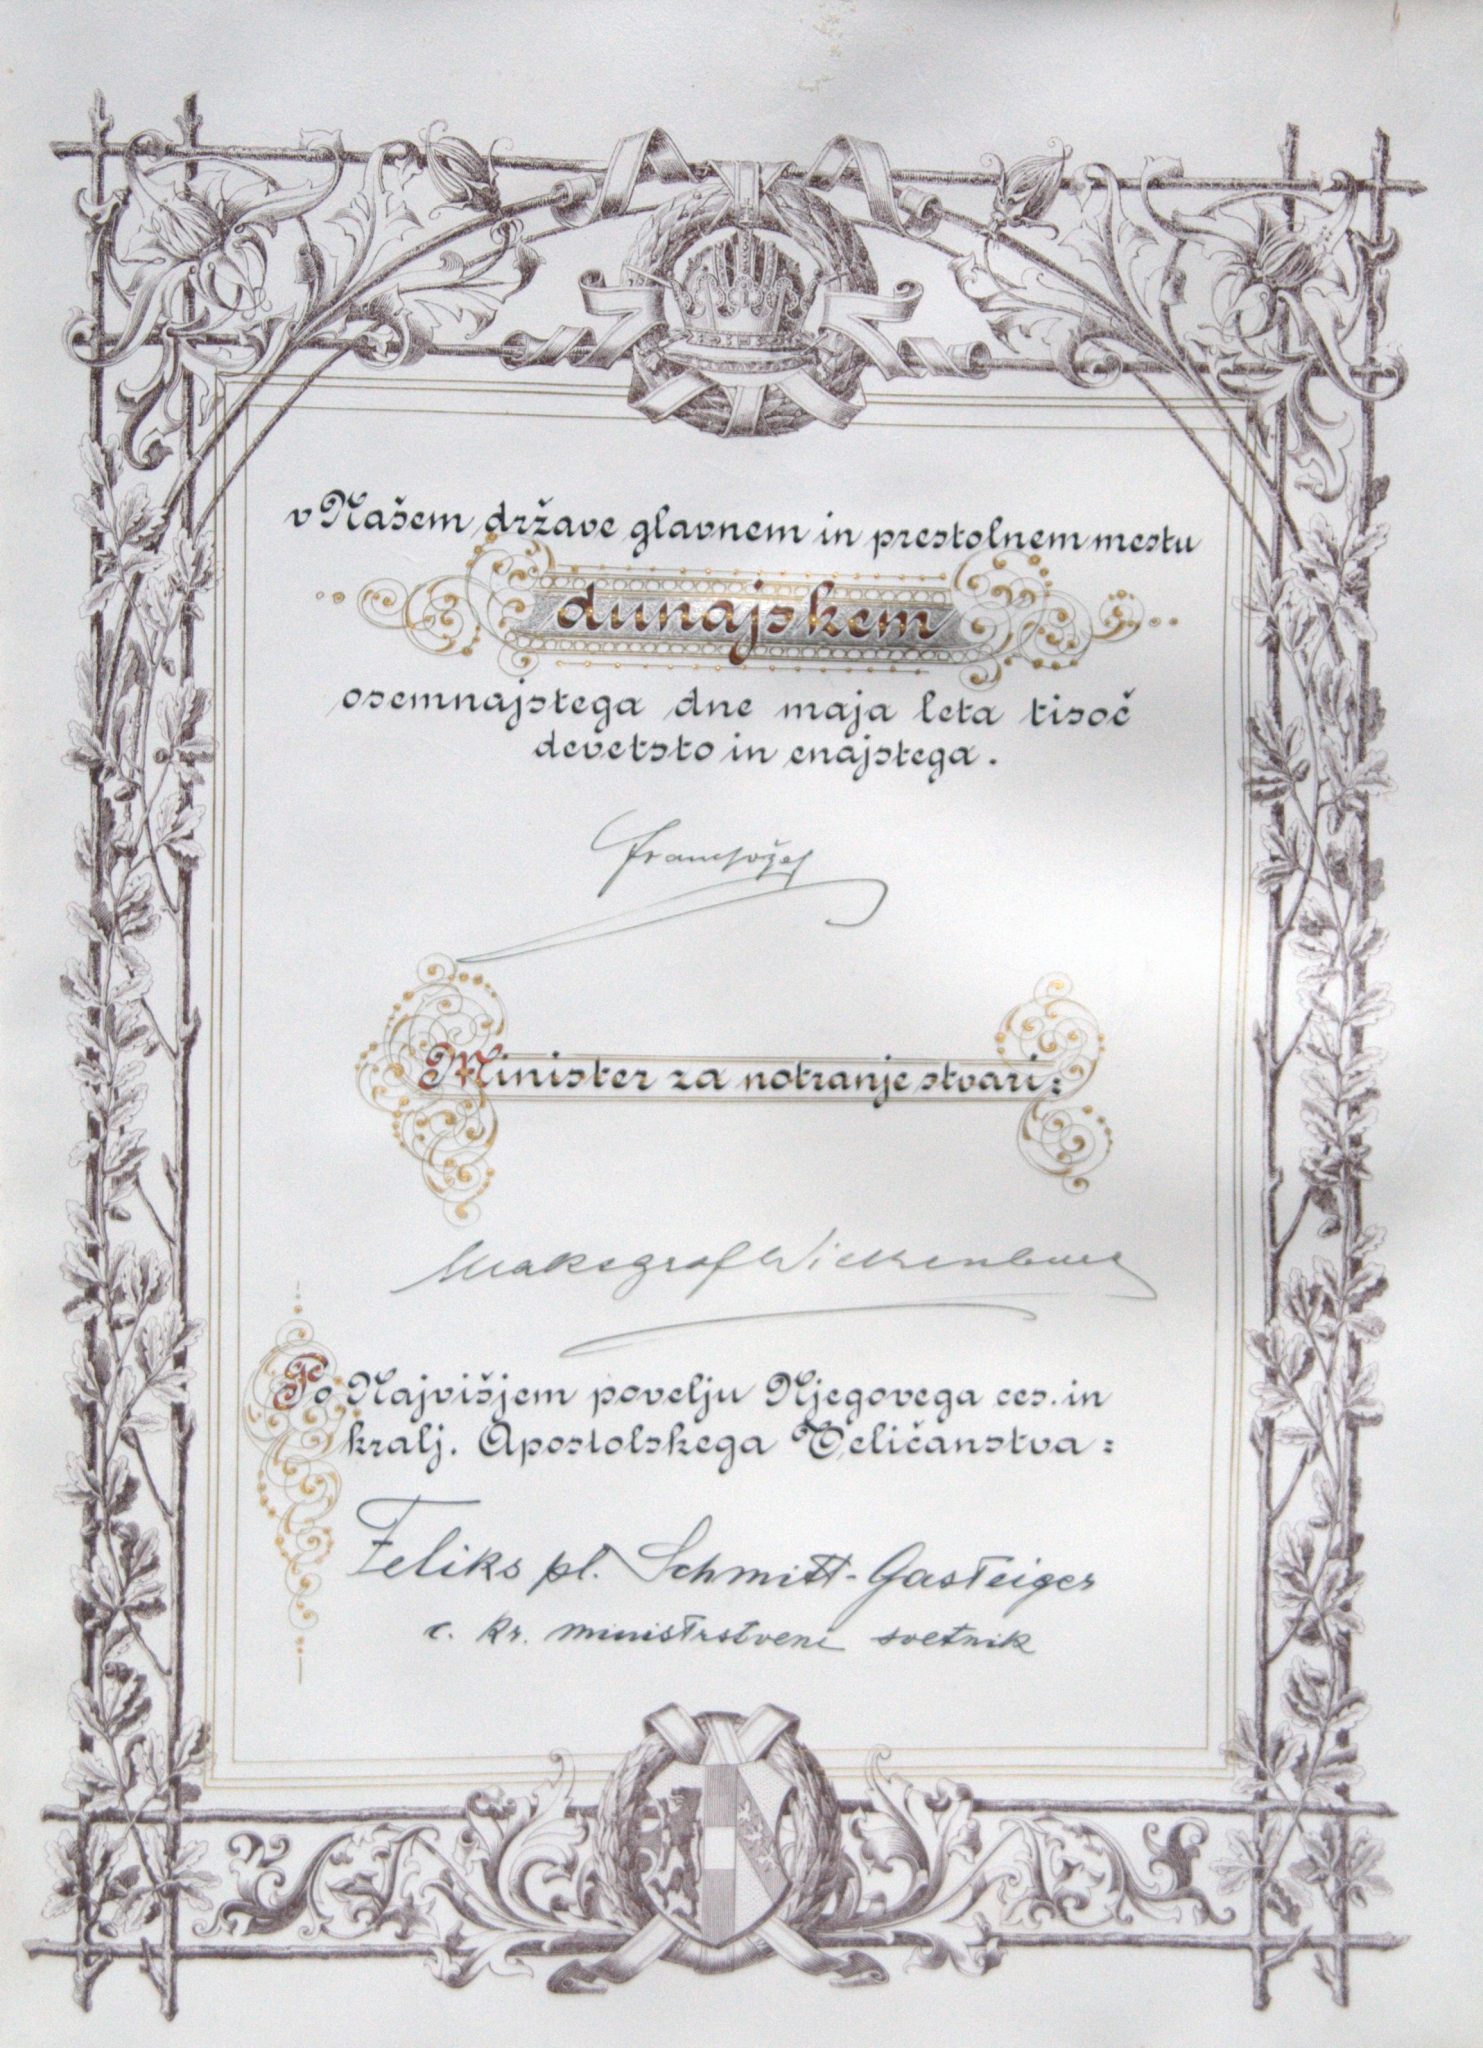 v Našem države glavnem in prestolnem mestu
dunajskem
osemnajstega dne maja leta tisoč
devetsto in enajstega.
Franc Jožef
Minister za notranje stvari:
Maks grof Wickenburg
Po Najvišjem povelju Njegovega ces. in
kralj. Apostolskega Veličanstva:
Feliks pl. Schmitt-Gasteiger
c. kr. ministrstveni svetnik